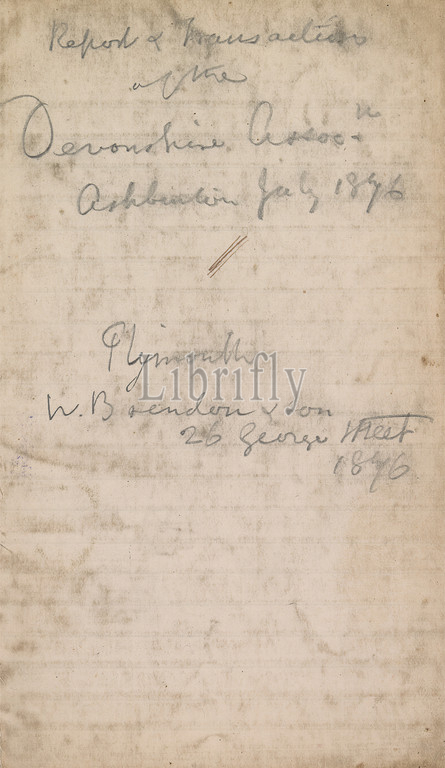 Report & Transactions
of the
Devonshire Assocn
Ashburton July 1876
Plymouth
Librifly
W. Brendon & Son
26 George Street
1876